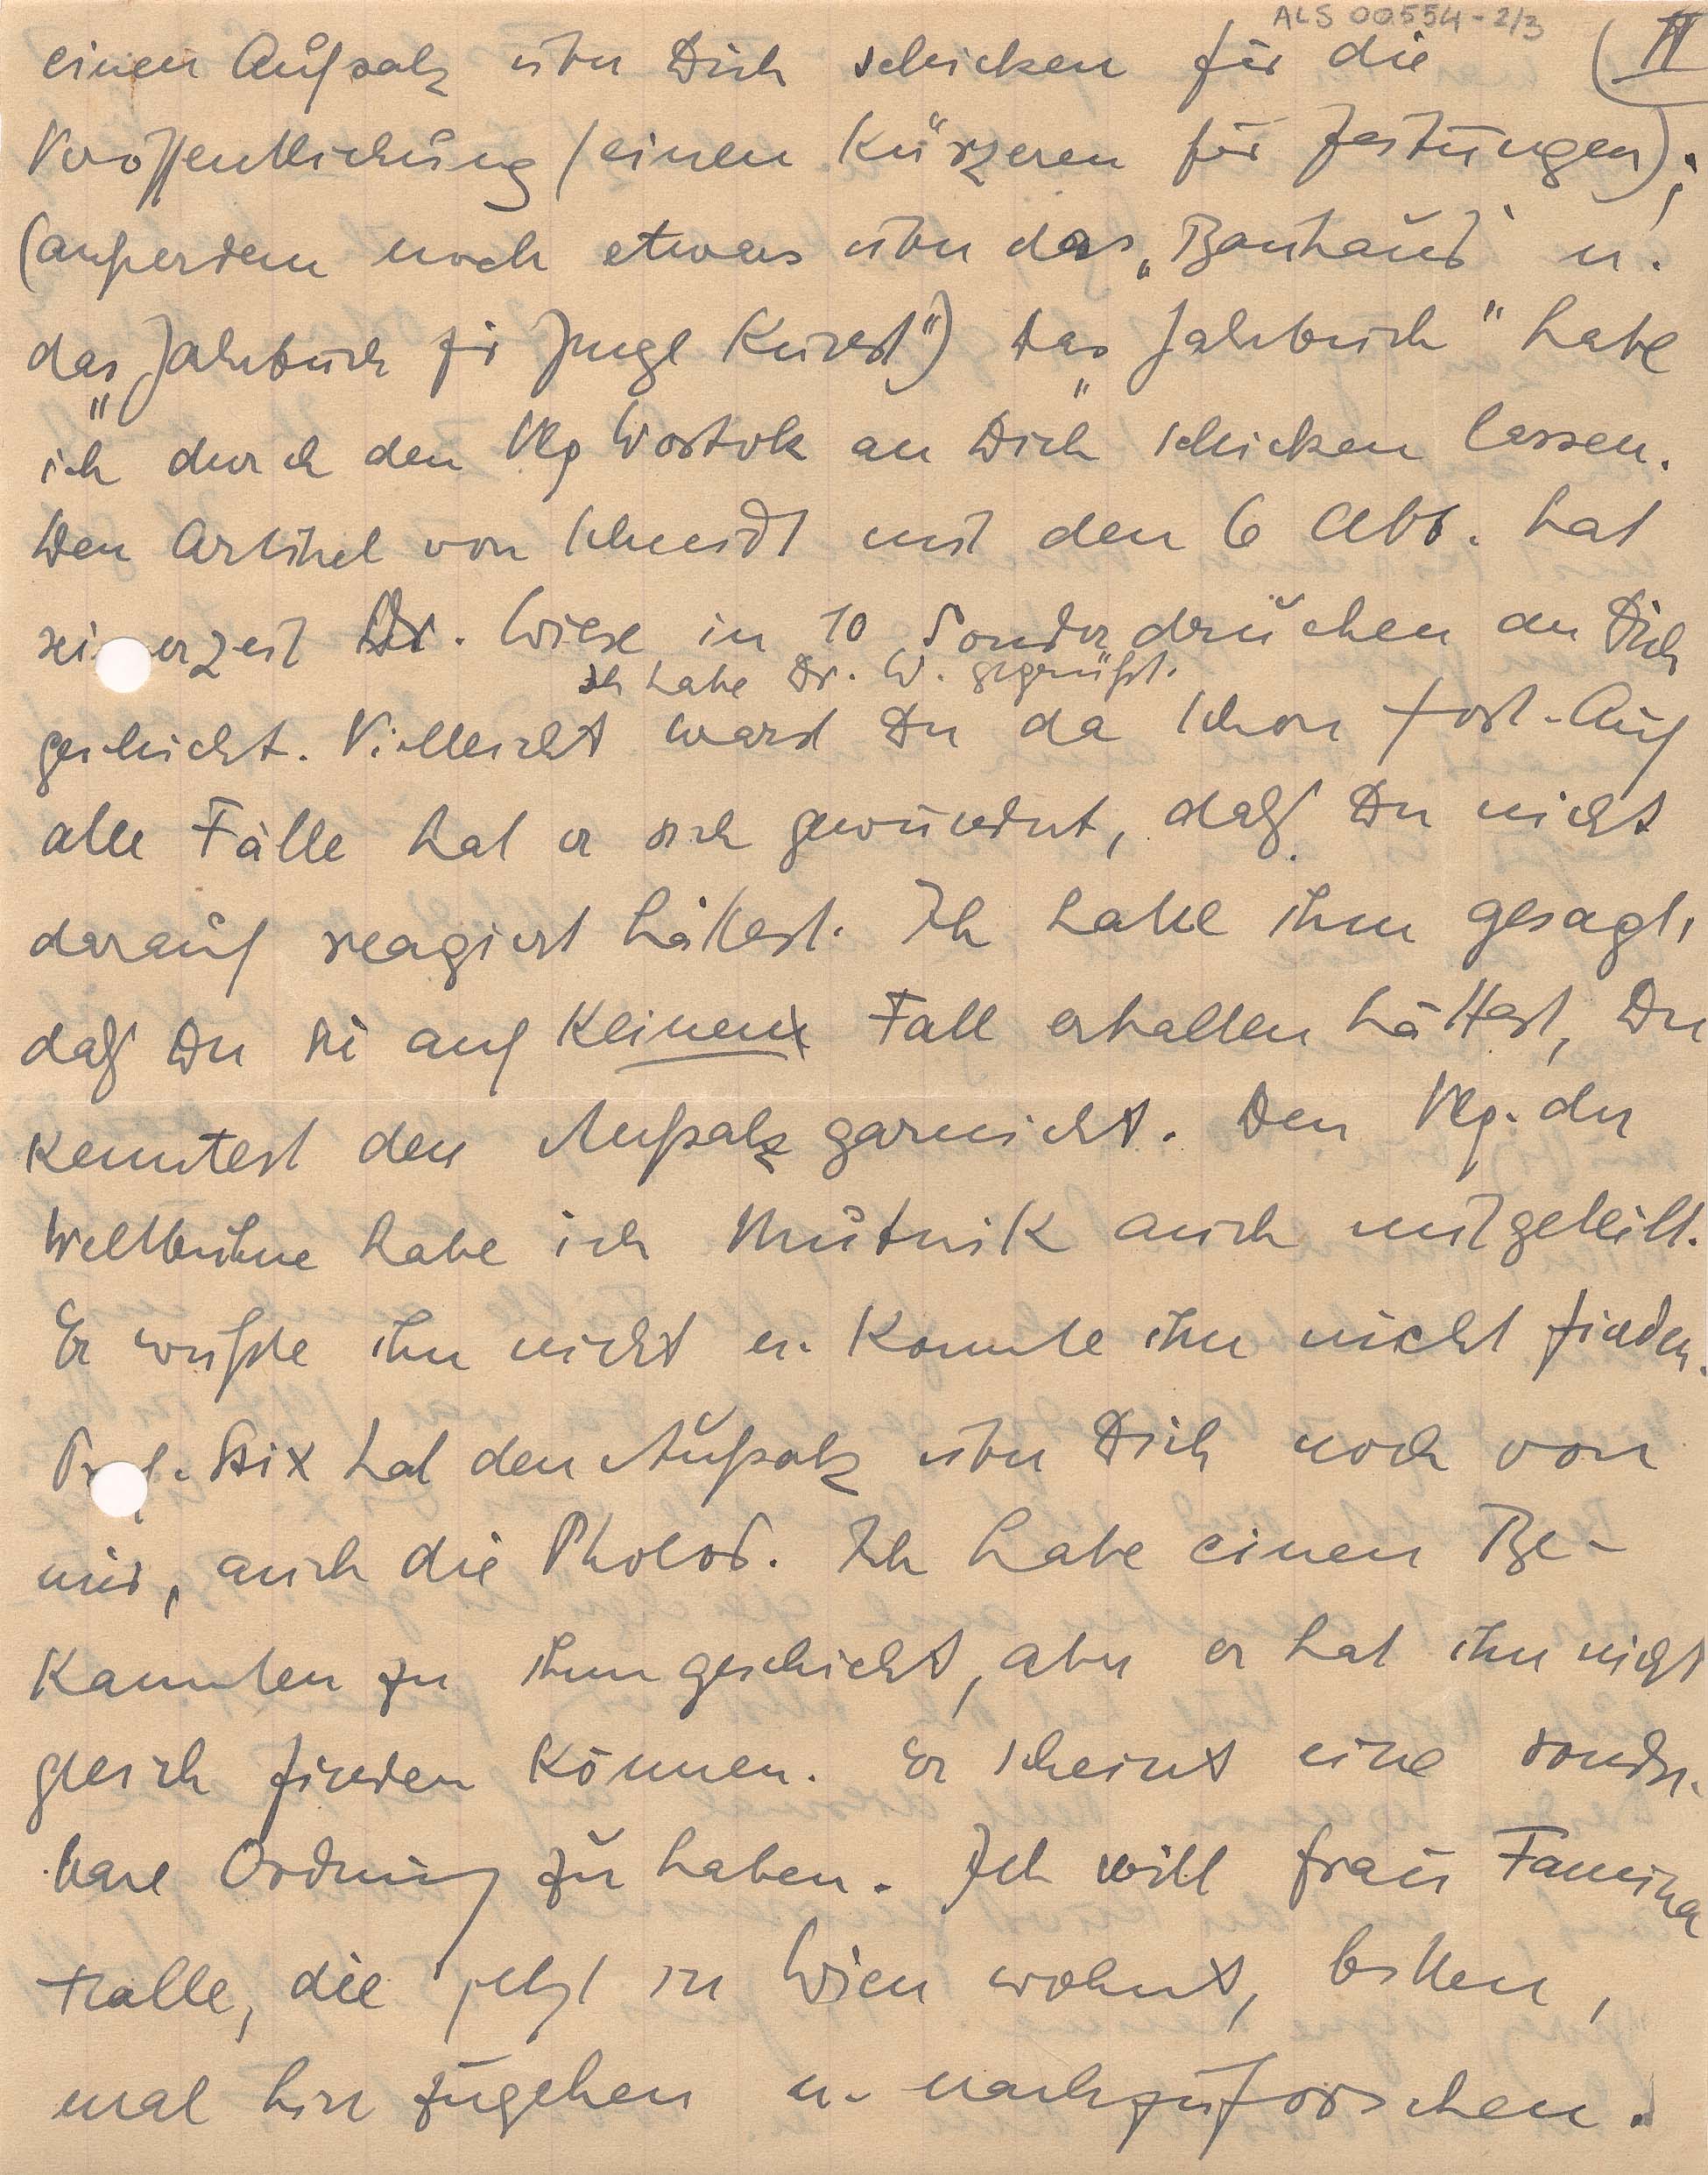 ALS 00554-2/3
II
einen Aufsatz über Dich schicken für die
Veröffentlichung (einen kürzeren für Zeitungen);
(außerdem noch etwas über das „Bauhaus" u.
das „Jahrbuch für Junge Kunst") Das „Jahrbuch" habe
ich durch den Vlg Wostok an Dich schicken lassen.
Den Artikel von Schmidt mit den 6 Abb. hat
seinerzeit Dr. Wiese in 10 Sonderdrucken an Dich
ich habe Dr. W. gegrüßt.
geschickt. Vielleicht warst Du da schon fort. Auf
alle Fälle hat er sich gewundert, daß Du nicht
darauf reagiert hättest. Ich habe ihm gesagt,
daß Du sie auf keinen Fall erhalten hättest, Du
kenntest den Aufsatz garnicht. Den Vlg. der
Weltbühne habe ich Mutnik auch mitgeteilt.
Er wußte ihn nicht u. konnte ihn nicht finden.
Prof. Stix hat den Aufsatz über Dich noch von
mir, auch die Photos. Ich habe einen Be-
kannten zu ihm geschickt, aber er hat ihn nicht
gleich finden können. Er scheint eine sonder-
bare Ordnung zu haben. Ich will Frau Famina
Halle, die jetzt in Wien wohnt, bitten,
mal hinzugehen u. nachzuforschen.